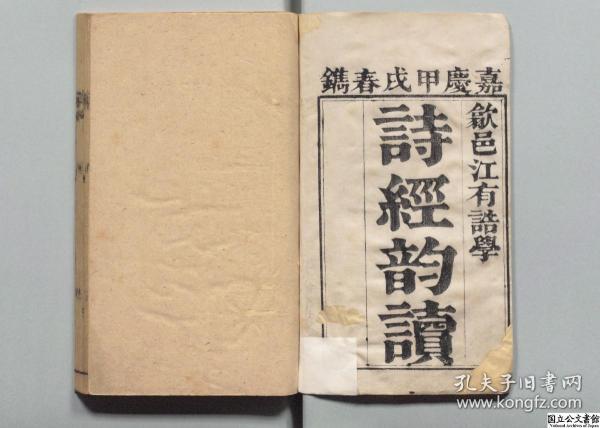 嘉慶甲戌春鐫
歙邑江有誥學
詩經韵讀
孔夫子旧书网
www.kongfz.com
国立公文書館
National Archives of Japan